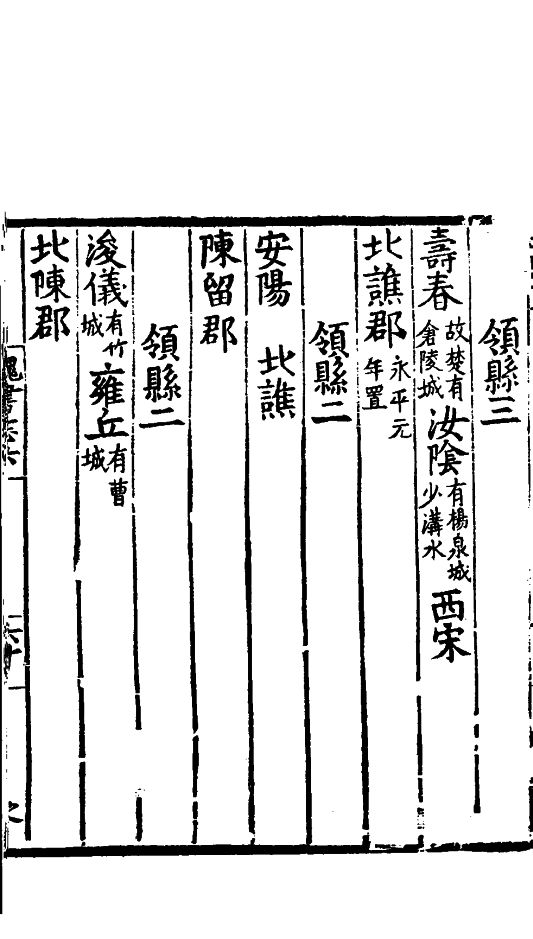 領縣三
壽春故楚有倉陵城汝陰有楊泉城少溝水西宋
北譙郡永平元年置
領縣二
安陽　北譙
陳留郡
領縣二
浚儀有竹城雍丘有曹城
北陳郡
魏書志六